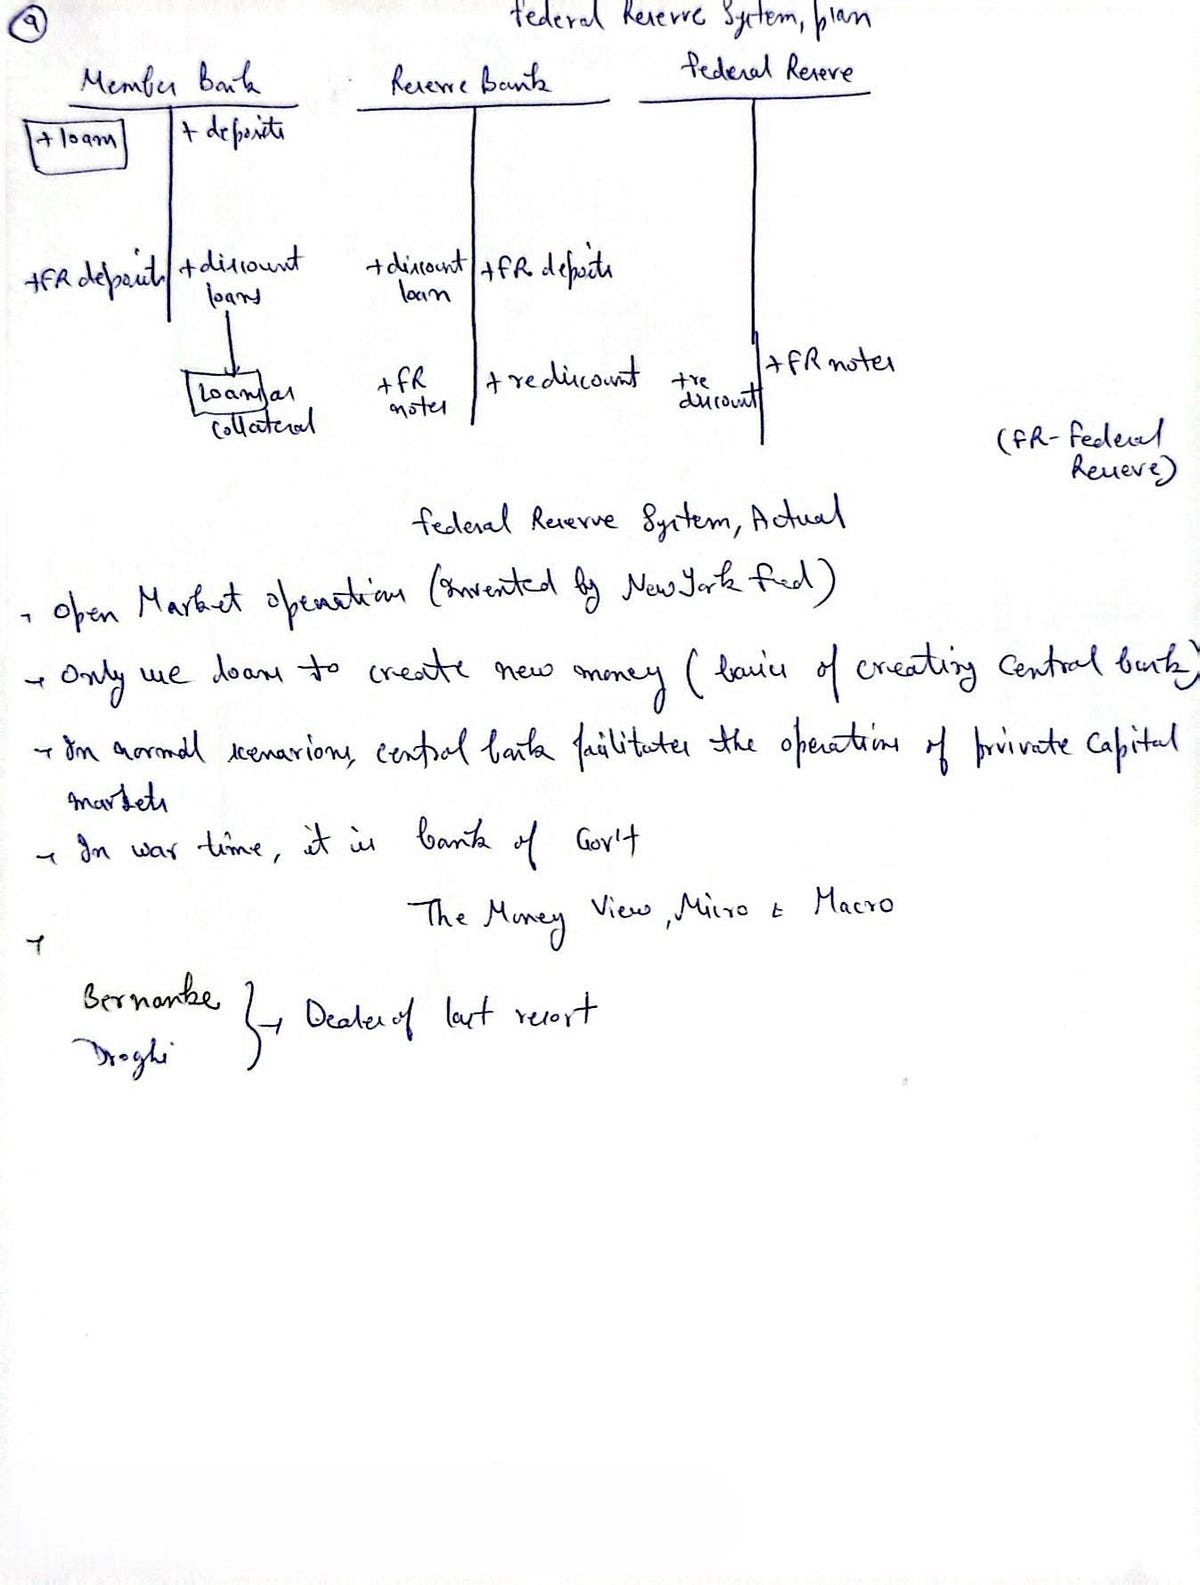 9
Federal Reserve System, plan
Member Bank Reserve Bank Federal Reseve
+ loam + deposits
+FR deposits +discount loans +discount loan +FR deposits
loans as collateral +FR notes + rediscount +re discount +FR notes
(FR- Federal
Reserve)
Federal Reserve System, Actual
→ Open Market operations (invented by New York Fed)
→ Only use loans to create new money (basics of creating Central bank)
→ In normal scenarions, central bank failitates the operations of prvivate Capital
markets
→ In war time, it is bank of Gov't
The Money View, Micro & Macro
→
Bernanke
Draghi } → Dealer of last resort